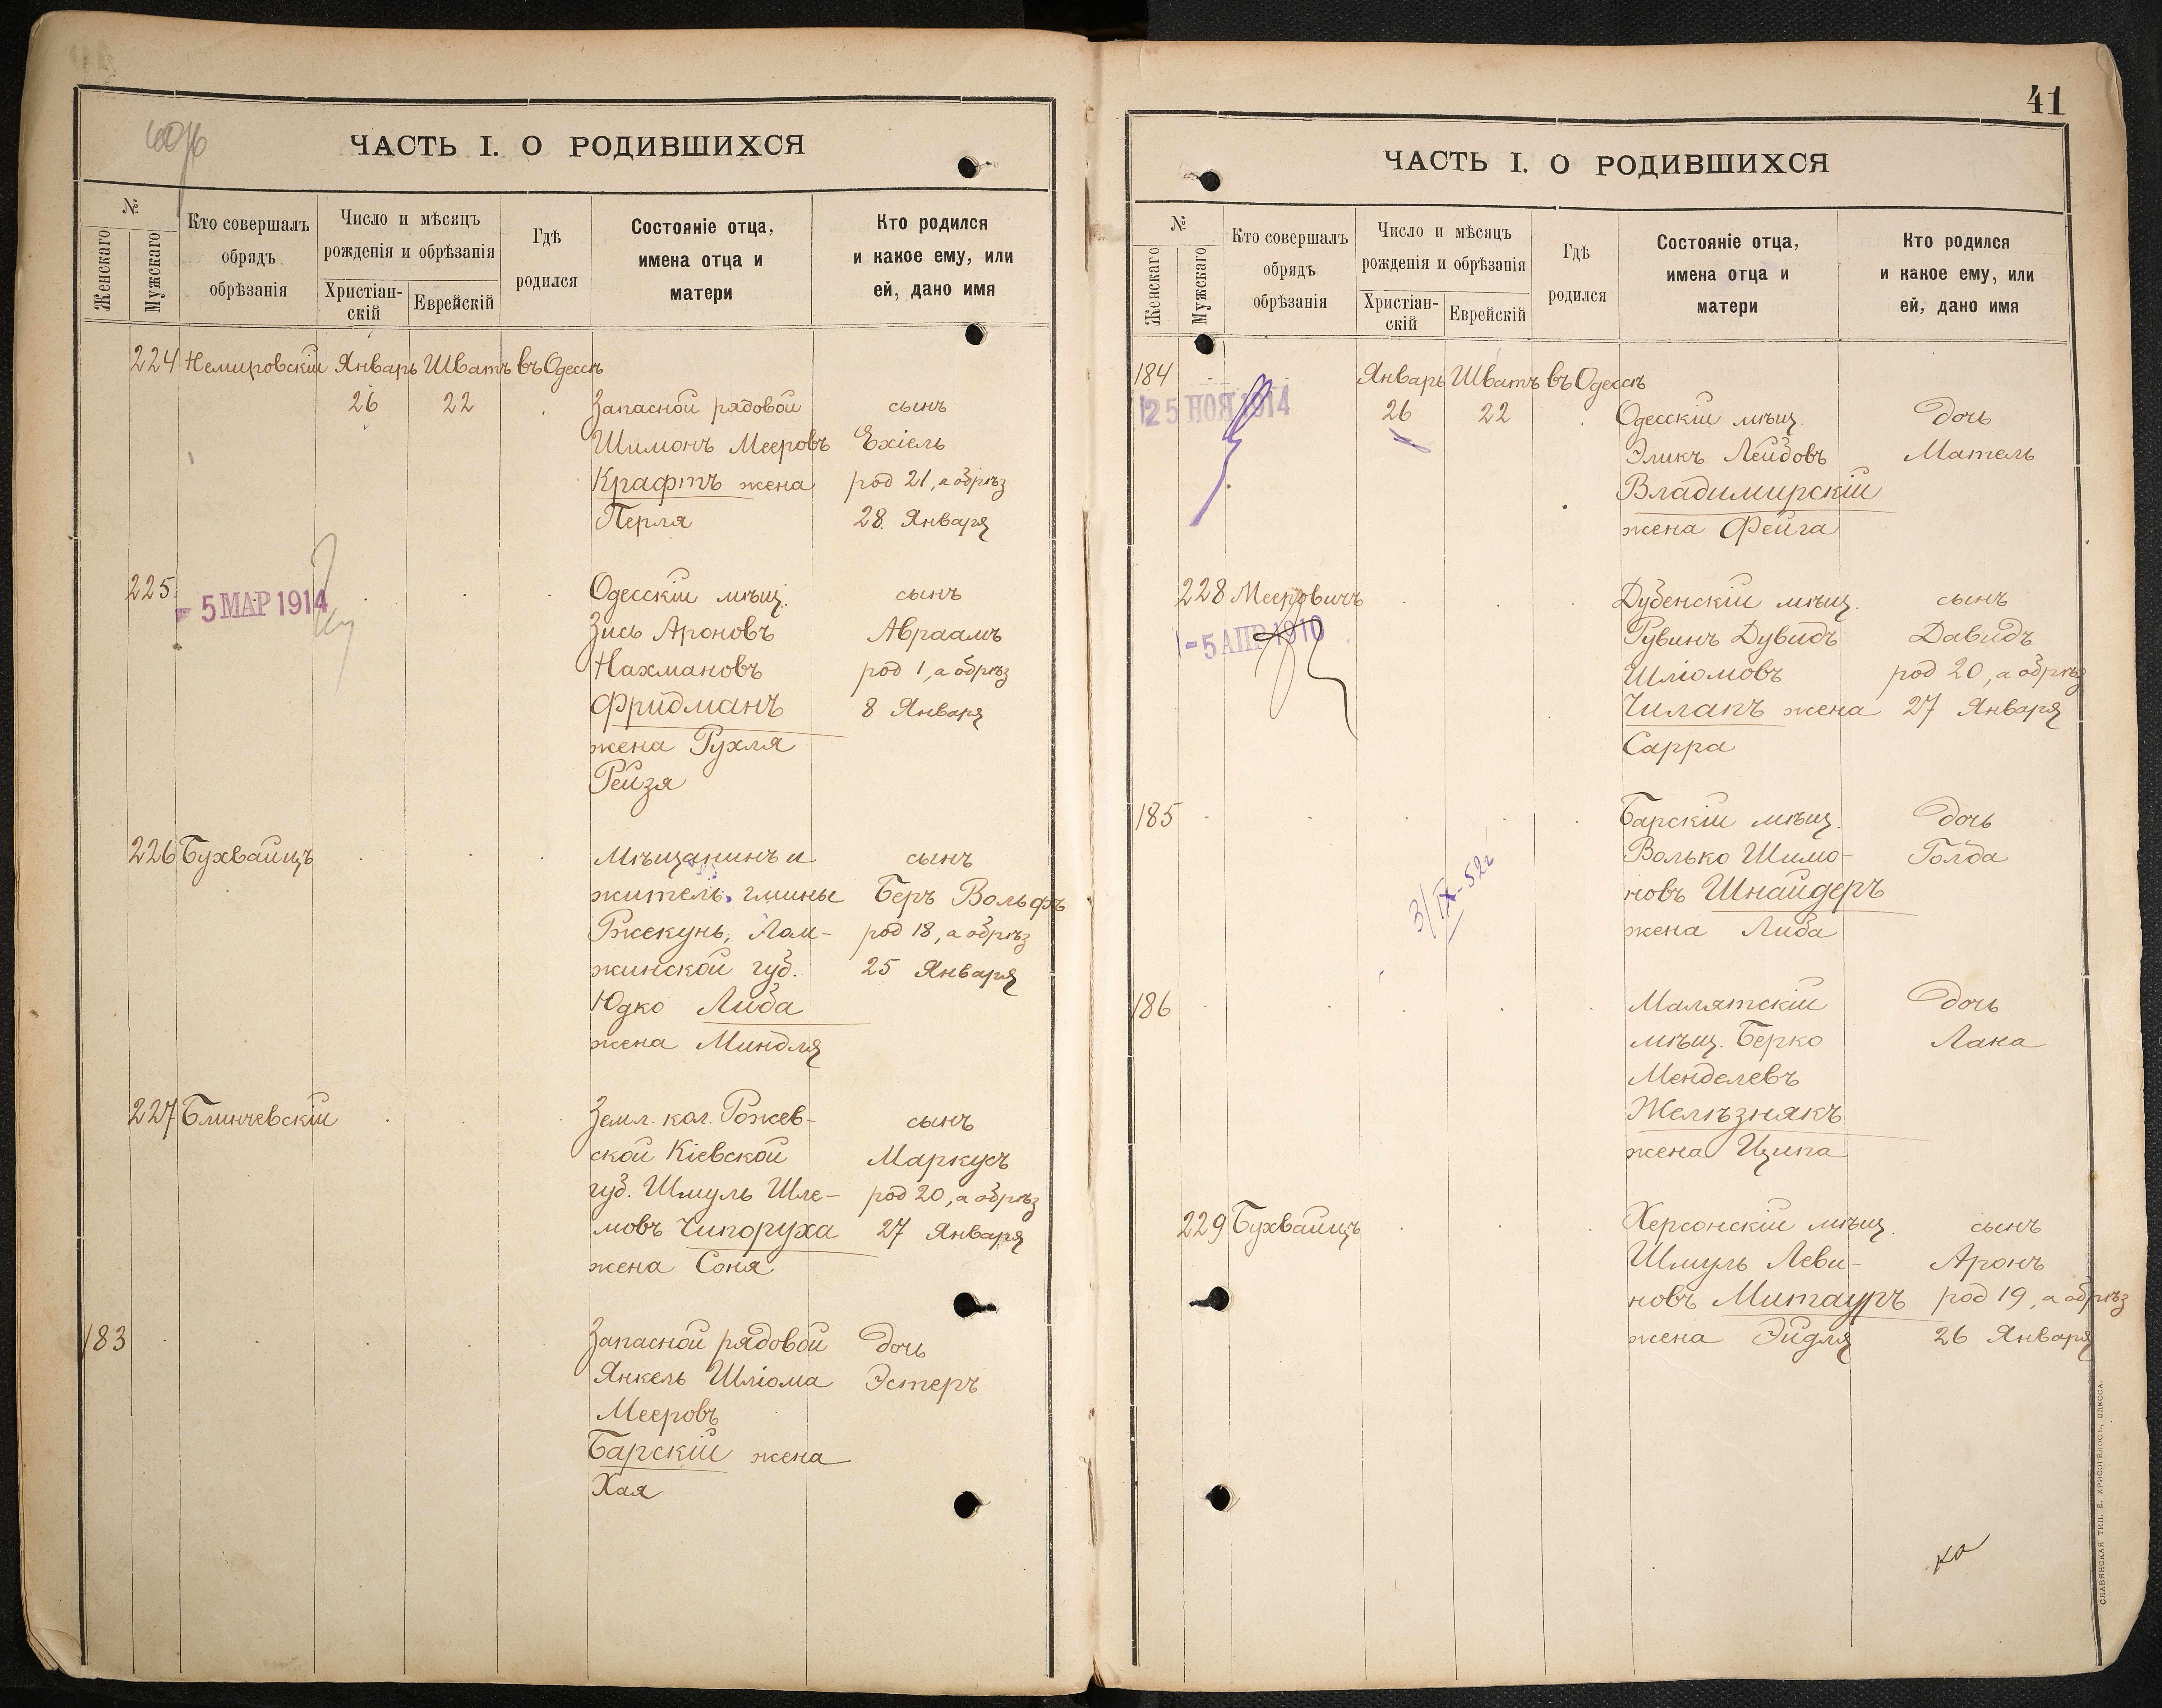 ЧАСТЬ I. О РОДИВШИХСЯ
№
Женскаго
Мужскаго
Кто совершалъ
обрядъ
обрѣзанія
Число и мѣсяцъ
рожденія и обрѣзанія
Христіан-
скій
Еврейскій
Гдѣ
родился
Состояніе отца,
имена отца и
матери
Кто родился
и какое ему, или
ей, дано имя
224 Немировскій Январь Шватъ въ Одессѣ
26 22 Запасной рядовой сынъ
Шимонъ Мееровъ Ехіель
Крафтъ жена род 21, а обрѣз
Перля 28 Января
225 Одесскій мѣщ. сынъ
- 5 МАР 1914
Зись Ароновъ Авраамъ
Нахмановъ род 1, а обрѣз
Фридманъ 8 Января
жена Рухля
Рейзя
226 Бухвайцъ Мѣщанинъ и сынъ
житель гмины Беръ Вольфъ
Ржекунь, Лом- род 18, а обрѣз
жинской губ. 25 Января
Юдко Либа
жена Миндля
227 Блинчевскій Земл. кол. Рожев- сынъ
ской Кіевской Маркусъ
губ. Шмуль Шле- род 20, а обрѣз
мовъ Чипоруха 27 Января
жена Соня
183 Запасной рядовой дочь
Янкель Шліома Эстеръ
Мееровъ
Барскій жена
Хая
41
ЧАСТЬ I. О РОДИВШИХСЯ
№
Женскаго
Мужскаго
Кто совершалъ
обрядъ
обрѣзанія
Число и мѣсяцъ
рожденія и обрѣзанія
Христіан-
скій
Еврейскій
Гдѣ
родился
Состояніе отца,
имена отца и
матери
Кто родился
и какое ему, или
ей, дано имя
184 Январь Шватъ въ Одессѣ
25 НОЯ 1914
26 22 Одесскій мѣщ. дочь
Эликъ Лейбовъ Матель
Владимирскій
жена Фейга
228 Мееровичъ Дубенскій мѣщ. сынъ
- 5 АПР 1910
Рувинъ Дувидъ Давидъ
Шліомовъ род 20, а обрѣз
Чилакъ жена 27 Января
Сарра
185 Барскій мѣщ. дочь
Волько Шимо- Голда
новъ Шнайдеръ
жена Либа
3/IX-52г
186 Малятскій дочь
мѣщ. Берко Лака
Менделевъ
Желѣзнякъ
жена Ципа
229 Бухвайцъ Херсонскій мѣщ. сынъ
Шмуль Леви- Аронъ
новъ Митауръ род 19, а обрѣз
жена Эйдля 26 Января
СЛАВЯНСКАЯ ТИП. Е. ХРИСОГЕЛОСЪ, ОДЕССА.